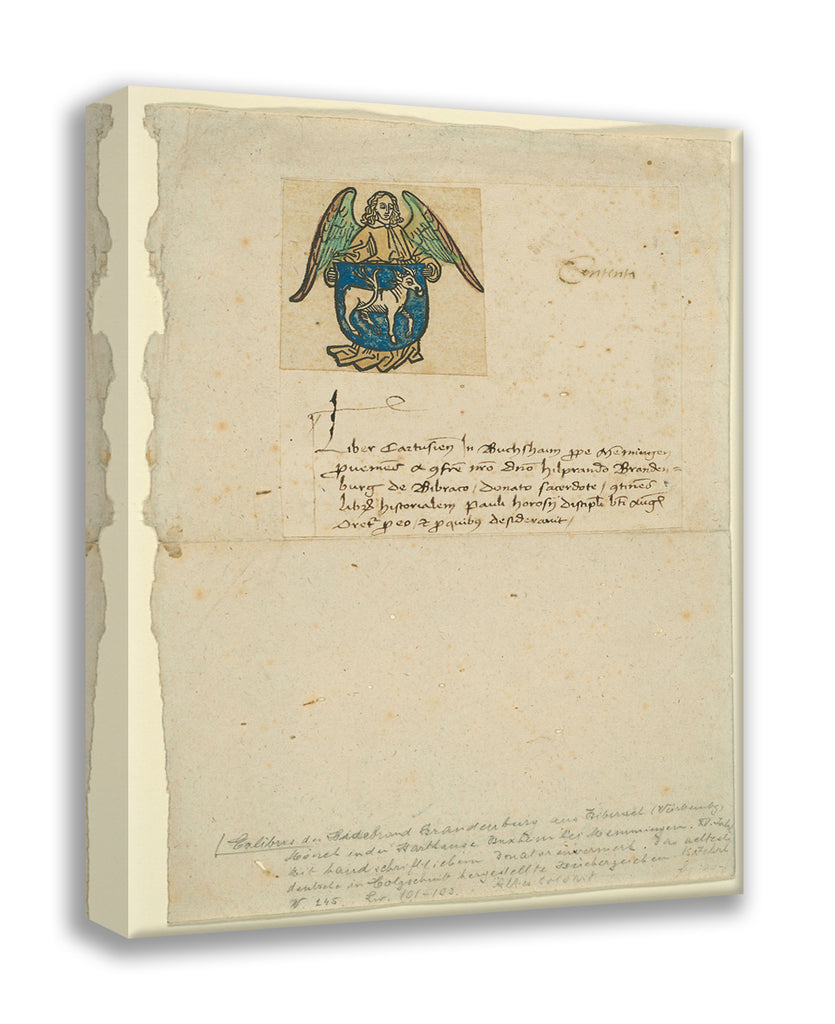 Contenta
Liber Cartusien̄ In Buchshaim ꝓpe Mēmingen
ꝓueniēs a ꝯfrē nr̄o dn̄o hilprando Branden=
burg de Bibraco / donato sacerdote / ꝯtinēs
libr̄ historialem Pauli horosij discipli bti Aug
Oretr ꝓ eo / et ꝓ quibus desiderauit /
Exlibris des Hildebrand Brandenburg aus Biberach (Württembg)
Mönch in der Karthause Buxheim bei Memmingen.
Mit handschriftlichem Donatorenvermerk. Das aelteste
deutsche in Holzschnitt hergestellte Buecherzeichen.
W. 245. Lw. 101-103. Altes Colorit